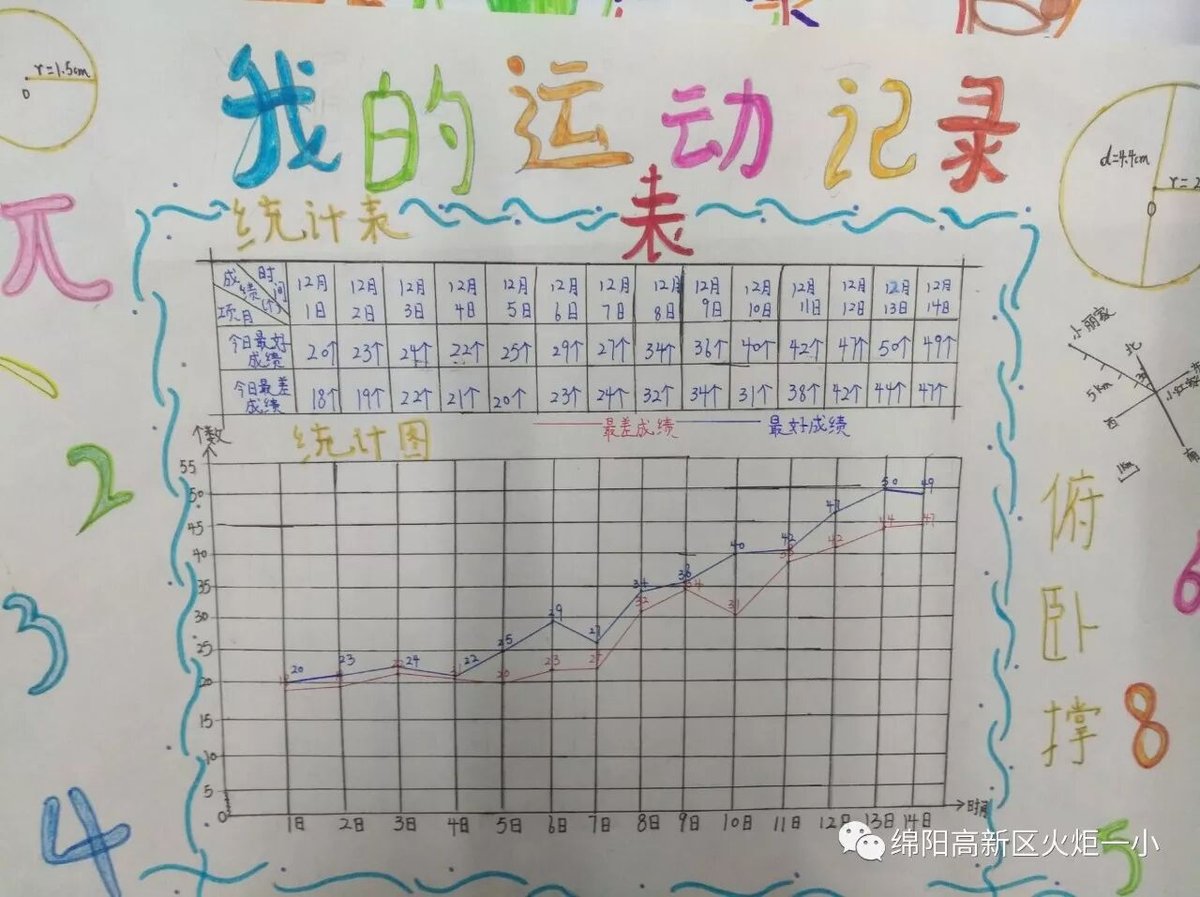 我的运动记录
表
r=1.5cm
O
d=4.4cm
O
π
2
3
4
统计表
成绩(个) 时间 项目 12月1日 12月2日 12月3日 12月4日 12月5日 12月6日 12月7日 12月8日 12月9日 12月10日 12月11日 12月12日 12月13日 12月14日
今日最好成绩 20个 23个 24个 22个 25个 29个 27个 34个 36个 40个 42个 47个 50个 49个
今日最差成绩 18个 19个 22个 21个 20个 23个 24个 32个 34个 31个 38个 42个 44个 47个
统计图
最差成绩 最好成绩
个数
55
50
45
40
35
30
25
20
15
10
5
0
20 23 24 22 25 29 27 34 36 40 42 47 50 49
22 21 20 23 32 34 31 42 44 47
1日 2日 3日 4日 5日 6日 7日 8日 9日 10日 11日 12日 13日 14日 时间
小丽家
北
5km
西
南
1km
俯
卧
撑
6
8
5
绵阳高新区火炬一小